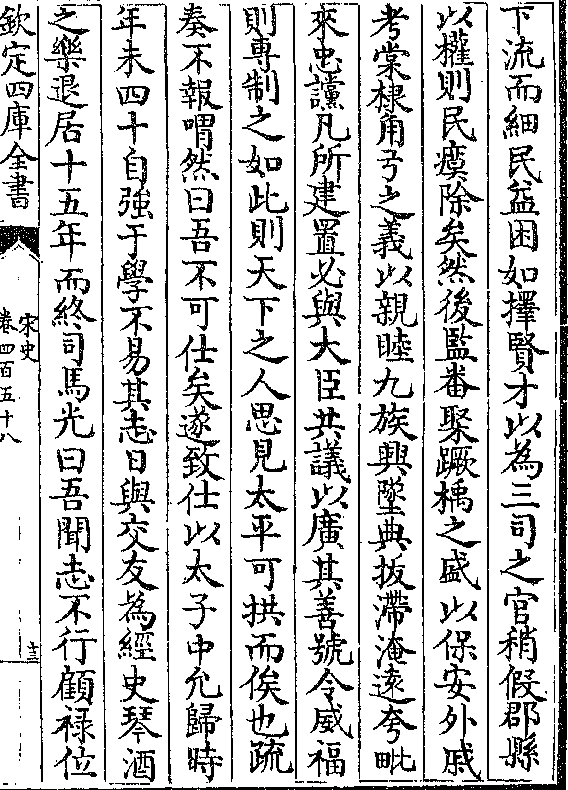 下流而細民益困如擇賢才以為三司之官稍假郡縣
以權則民瘼除矣然後監番聚蹶楀之盛以保安外戚
考棠棣角弓之義以親睦九族興墜典拔滯淹遠夸毗
來忠讜凡所建置必與大臣共議以廣其善號令威福
則専制之如此則天下之人思見太平可拱而俟也疏
奏不報喟然曰吾不可仕矣遂致仕以太子中允歸時
年未四十自強于學不易其志日與交友為經史琴酒
之樂退居十五年而終司馬光曰吾聞志不行顧禄位
欽定四庫全書
宋史
卷四百五十八
十三